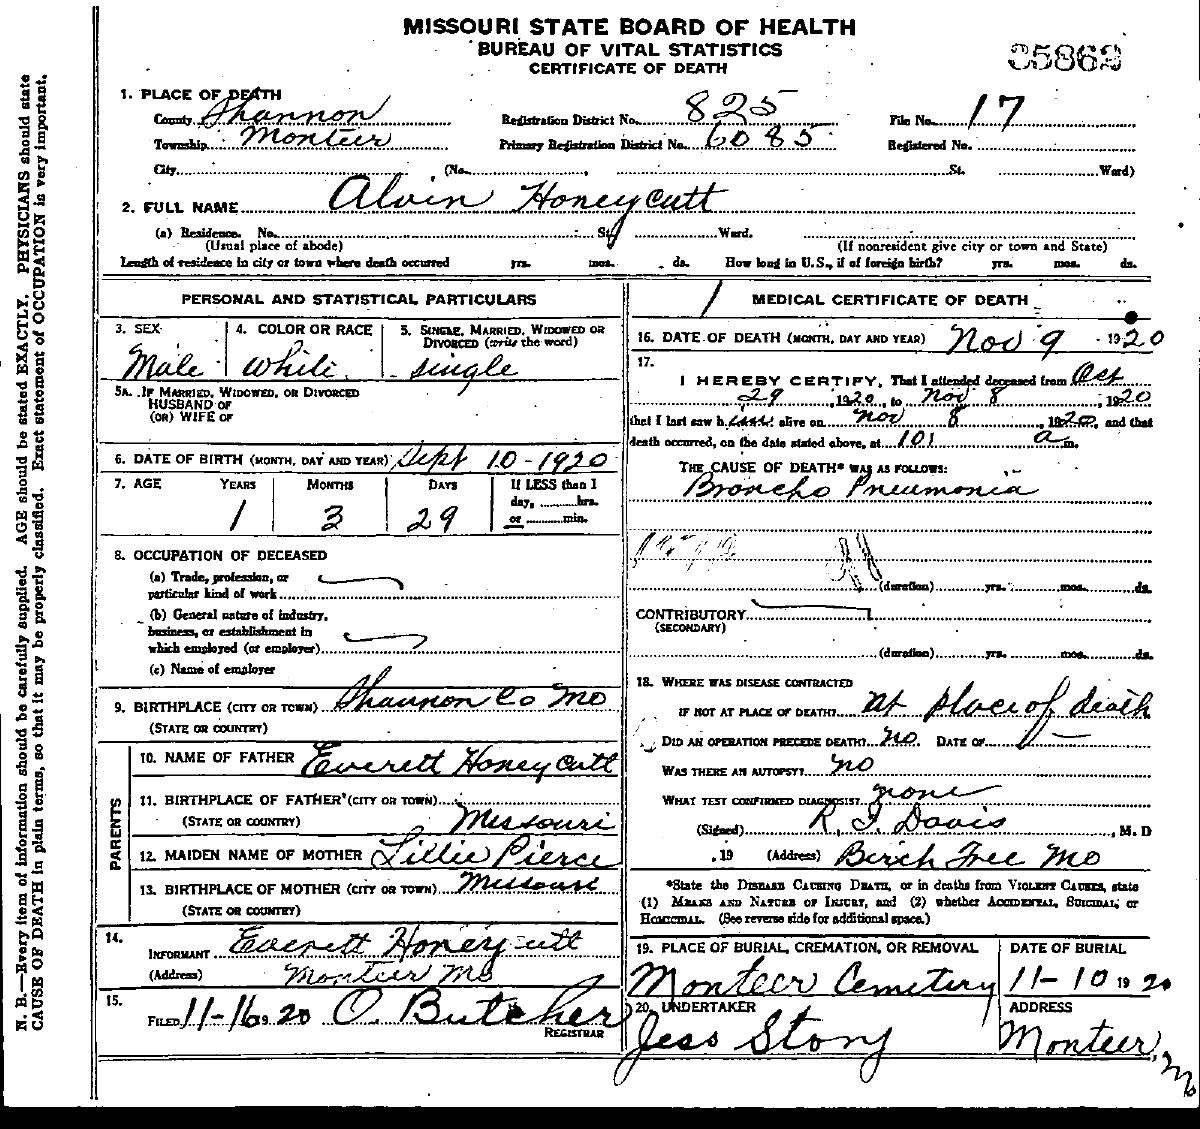 MISSOURI STATE BOARD OF HEALTH
BUREAU OF VITAL STATISTICS
CERTIFICATE OF DEATH
35862
1. PLACE OF DEATH
County Shannon Registration District No. 825 File No. 17
Township Monteer Primary Registration District No. 6085 Registered No.
City (No. , St. Ward)
2. FULL NAME Alvin Honeycutt
(a) Residence. No. St., Ward.
(Usual place of abode) (If nonresident give city or town and State)
Length of residence in city or town where death occurred yrs. mos. ds. How long in U.S., if of foreign birth? yrs. mos. ds.
PERSONAL AND STATISTICAL PARTICULARS
3. SEX 4. COLOR OR RACE 5. SINGLE, MARRIED, WIDOWED OR
DIVORCED (write the word)
Male White single
5A. IF MARRIED, WIDOWED, OR DIVORCED
HUSBAND OF
(OR) WIFE OF
6. DATE OF BIRTH (MONTH, DAY AND YEAR) Sept 10-1920
7. AGE YEARS MONTHS DAYS If LESS than 1
day, hrs.
or min.
1 3 29
8. OCCUPATION OF DECEASED
(a) Trade, profession, or
particular kind of work
(b) General nature of industry,
business, or establishment in
which employed (or employer)
(c) Name of employer
9. BIRTHPLACE (CITY OR TOWN) Shannon Co Mo
(STATE OR COUNTRY)
PARENTS
10. NAME OF FATHER Everett Honeycutt
11. BIRTHPLACE OF FATHER (CITY OR TOWN)
(STATE OR COUNTRY) Missouri
12. MAIDEN NAME OF MOTHER Lillie Pierce
13. BIRTHPLACE OF MOTHER (CITY OR TOWN) Missouri
(STATE OR COUNTRY)
14.
INFORMANT Everett Honeycutt
(Address) Monteer Mo
15.
FILED 11-16 1920 O. Butcher
REGISTRAR
MEDICAL CERTIFICATE OF DEATH
16. DATE OF DEATH (MONTH, DAY AND YEAR) Nov 9 1920
17.
I HEREBY CERTIFY, That I attended deceased from Oct
29, 1920, to Nov 8, 1920
that I last saw him alive on Nov 8, 1920, and that
death occurred, on the date stated above, at 101 a m.
THE CAUSE OF DEATH* WAS AS FOLLOWS:
Broncho Pneumonia
(duration) yrs. mos. ds.
CONTRIBUTORY
(SECONDARY)
(duration) yrs. mos. ds.
18. WHERE WAS DISEASE CONTRACTED
IF NOT AT PLACE OF DEATH? at place of death
DID AN OPERATION PRECEDE DEATH? no. DATE OF
WAS THERE AN AUTOPSY? no
WHAT TEST CONFIRMED DIAGNOSIS? none
(Signed) R. F. Davis, M. D
, 19 (Address) Birch Tree Mo
*State the DISEASE CAUSING DEATH, or in deaths from VIOLENT CAUSES, state
(1) MEANS AND NATURE OF INJURY, and (2) whether ACCIDENTAL, SUICIDAL, or
HOMICIDAL. (See reverse side for additional space.)
19. PLACE OF BURIAL, CREMATION, OR REMOVAL DATE OF BURIAL
Monteer Cemetery 11-10 1920
20. UNDERTAKER ADDRESS
Jess Story Monteer, Mo
N. B.—Every item of information should be carefully supplied. AGE should be stated EXACTLY. PHYSICIANS should state
CAUSE OF DEATH in plain terms, so that it may be properly classified. Exact statement of OCCUPATION is very important.